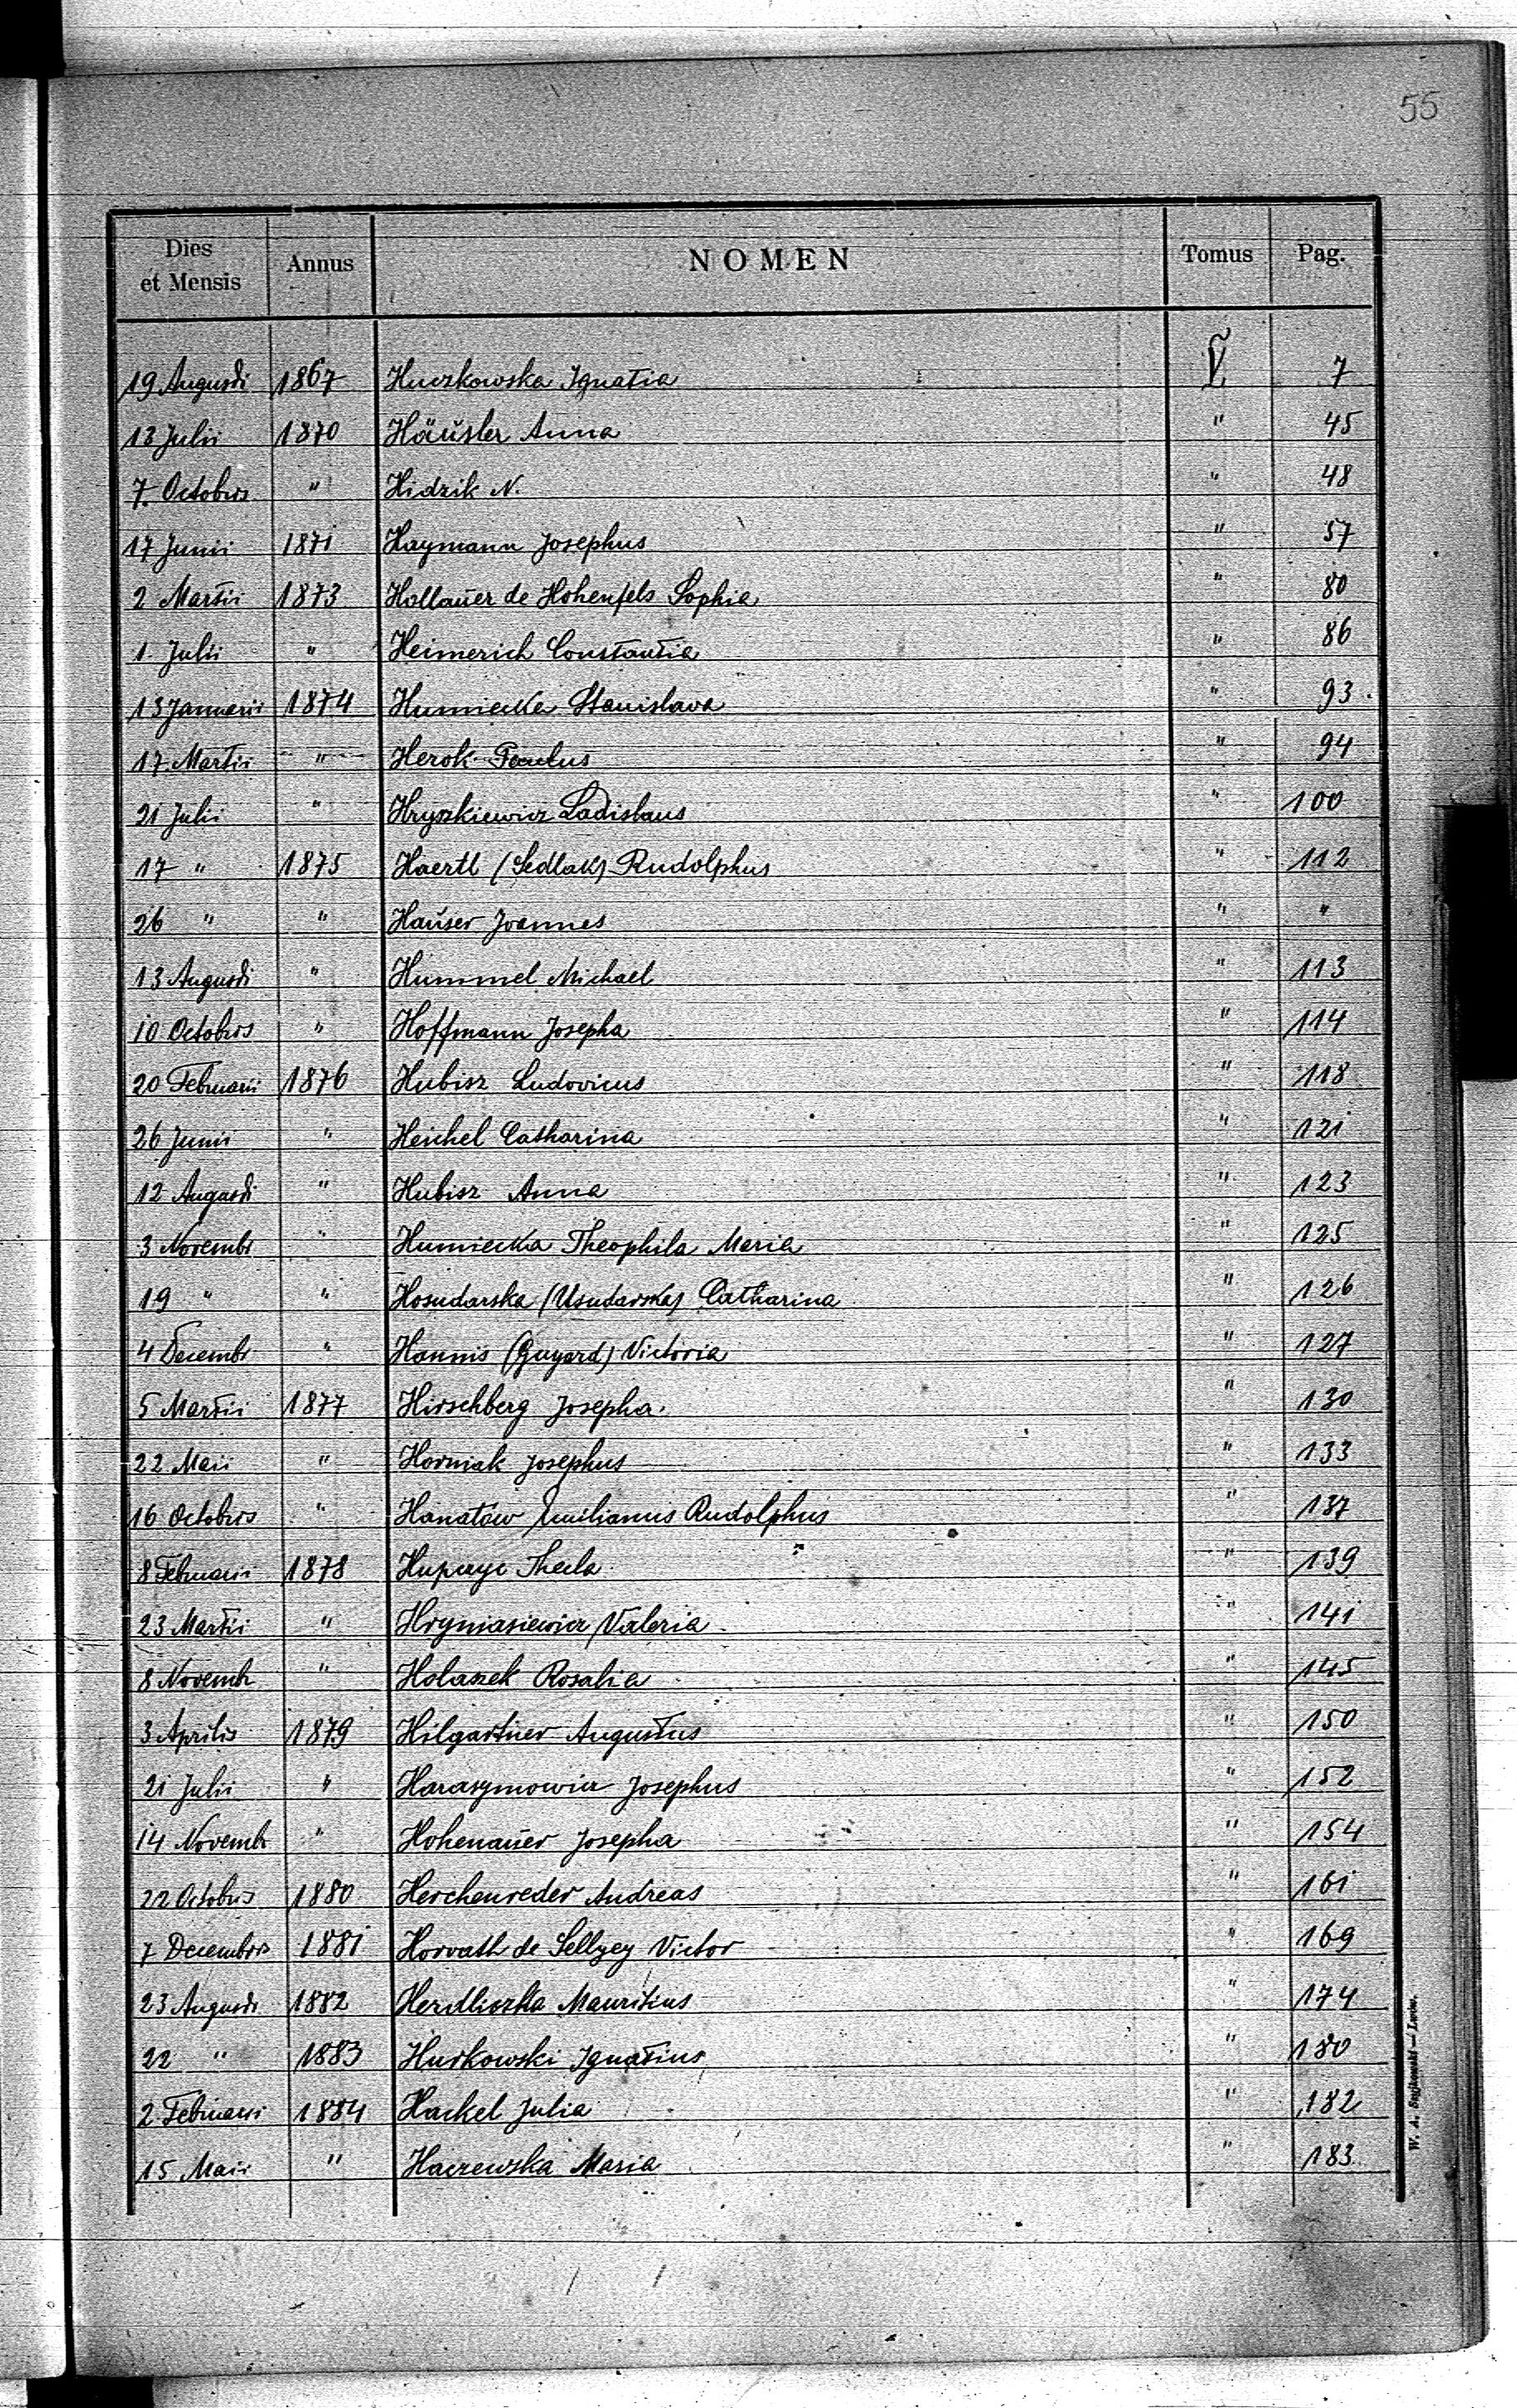 55
Dies et Mensis Annus NOMEN Tomus Pag.
19 Augusti 1867 Huczkowska Ignatia V 7
13 Julii 1870 Häusler Anna " 45
7 Octobris " Hidzik N. " 48
17 Junii 1871 Haymann Josephus " 57
2 Martii 1873 Hollauer de Hohenfels Sophia " 80
1 Julii " Heimerich Constantia " 86
13 Januarii 1874 Humiecka Stanislava " 93.
17 Martii " Herok Paulus " 94
21 Julii " Hryszkiewicz Ladislaus " 100
17 " 1875 Haertl (Sedlak) Rudolphus " 112
26 " " Hauser Joannes " "
13 Augusti " Hummel Michael " 113
10 Octobris " Hoffmann Josepha " 114
20 Februarii 1876 Hubisz Ludovicus " 118
26 Junii " Heichel Catharina " 121
12 Augusti " Hubisz Anna " 123
3 Novembr " Humiecka Theophila Maria " 125
19 " " Hosudarska (Usudarska) Catharina " 126
4 Decembr " Hannis (Guyard) Victoria " 127
5 Martii 1877 Hirschberg Josepha. " 130
22 Maii " Horniak Josephus " 133
16 Octobris " Hanatow Emilianus Rudolphus " 137
8 Februarii 1878 Thecla " 139
23 Martii " Hryniasiewicz Valeria " 141
8 Novembr " Holaszek Rosalia " 145
3 Aprilis 1879 Hilgartner Augustus " 150
21 Julii " Harasymowicz Josephus " 152
14 Novembr " Hohenauer Josepha " 154
22 Octobris 1880 Herchenreder Andreas " 161
7 Decembris 1881 Horvath de Sellyey Victor " 169
23 Augusti 1882 Herdliczka Mauritius " 174
22 " 1883 Hurkowski Ignatius " 180
2 Februarii 1884 Hackel Julia " 182
15 Maii " Haczewska Maria " 183